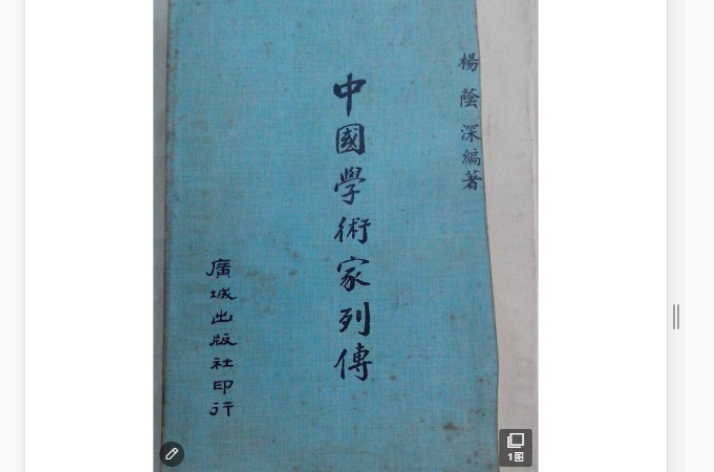 楊蔭深編著
中國學術家列傳
廣城出版社印行
1图